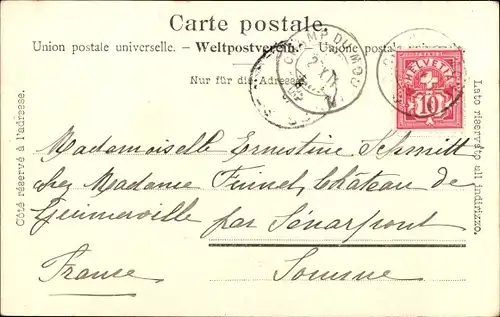 Carte postale.
Union postale universelle. – Weltpostverein. – Unione postale
Nur für die Adresse.
CHAMP DU MOU
2 X
HELVETIA
10
Côté réservé à l'adresse.
Lato riservato all indirizzo.
Mademoiselle Ernestine Schmitt
chez Madame Château de
par Sénarpont
France Somme